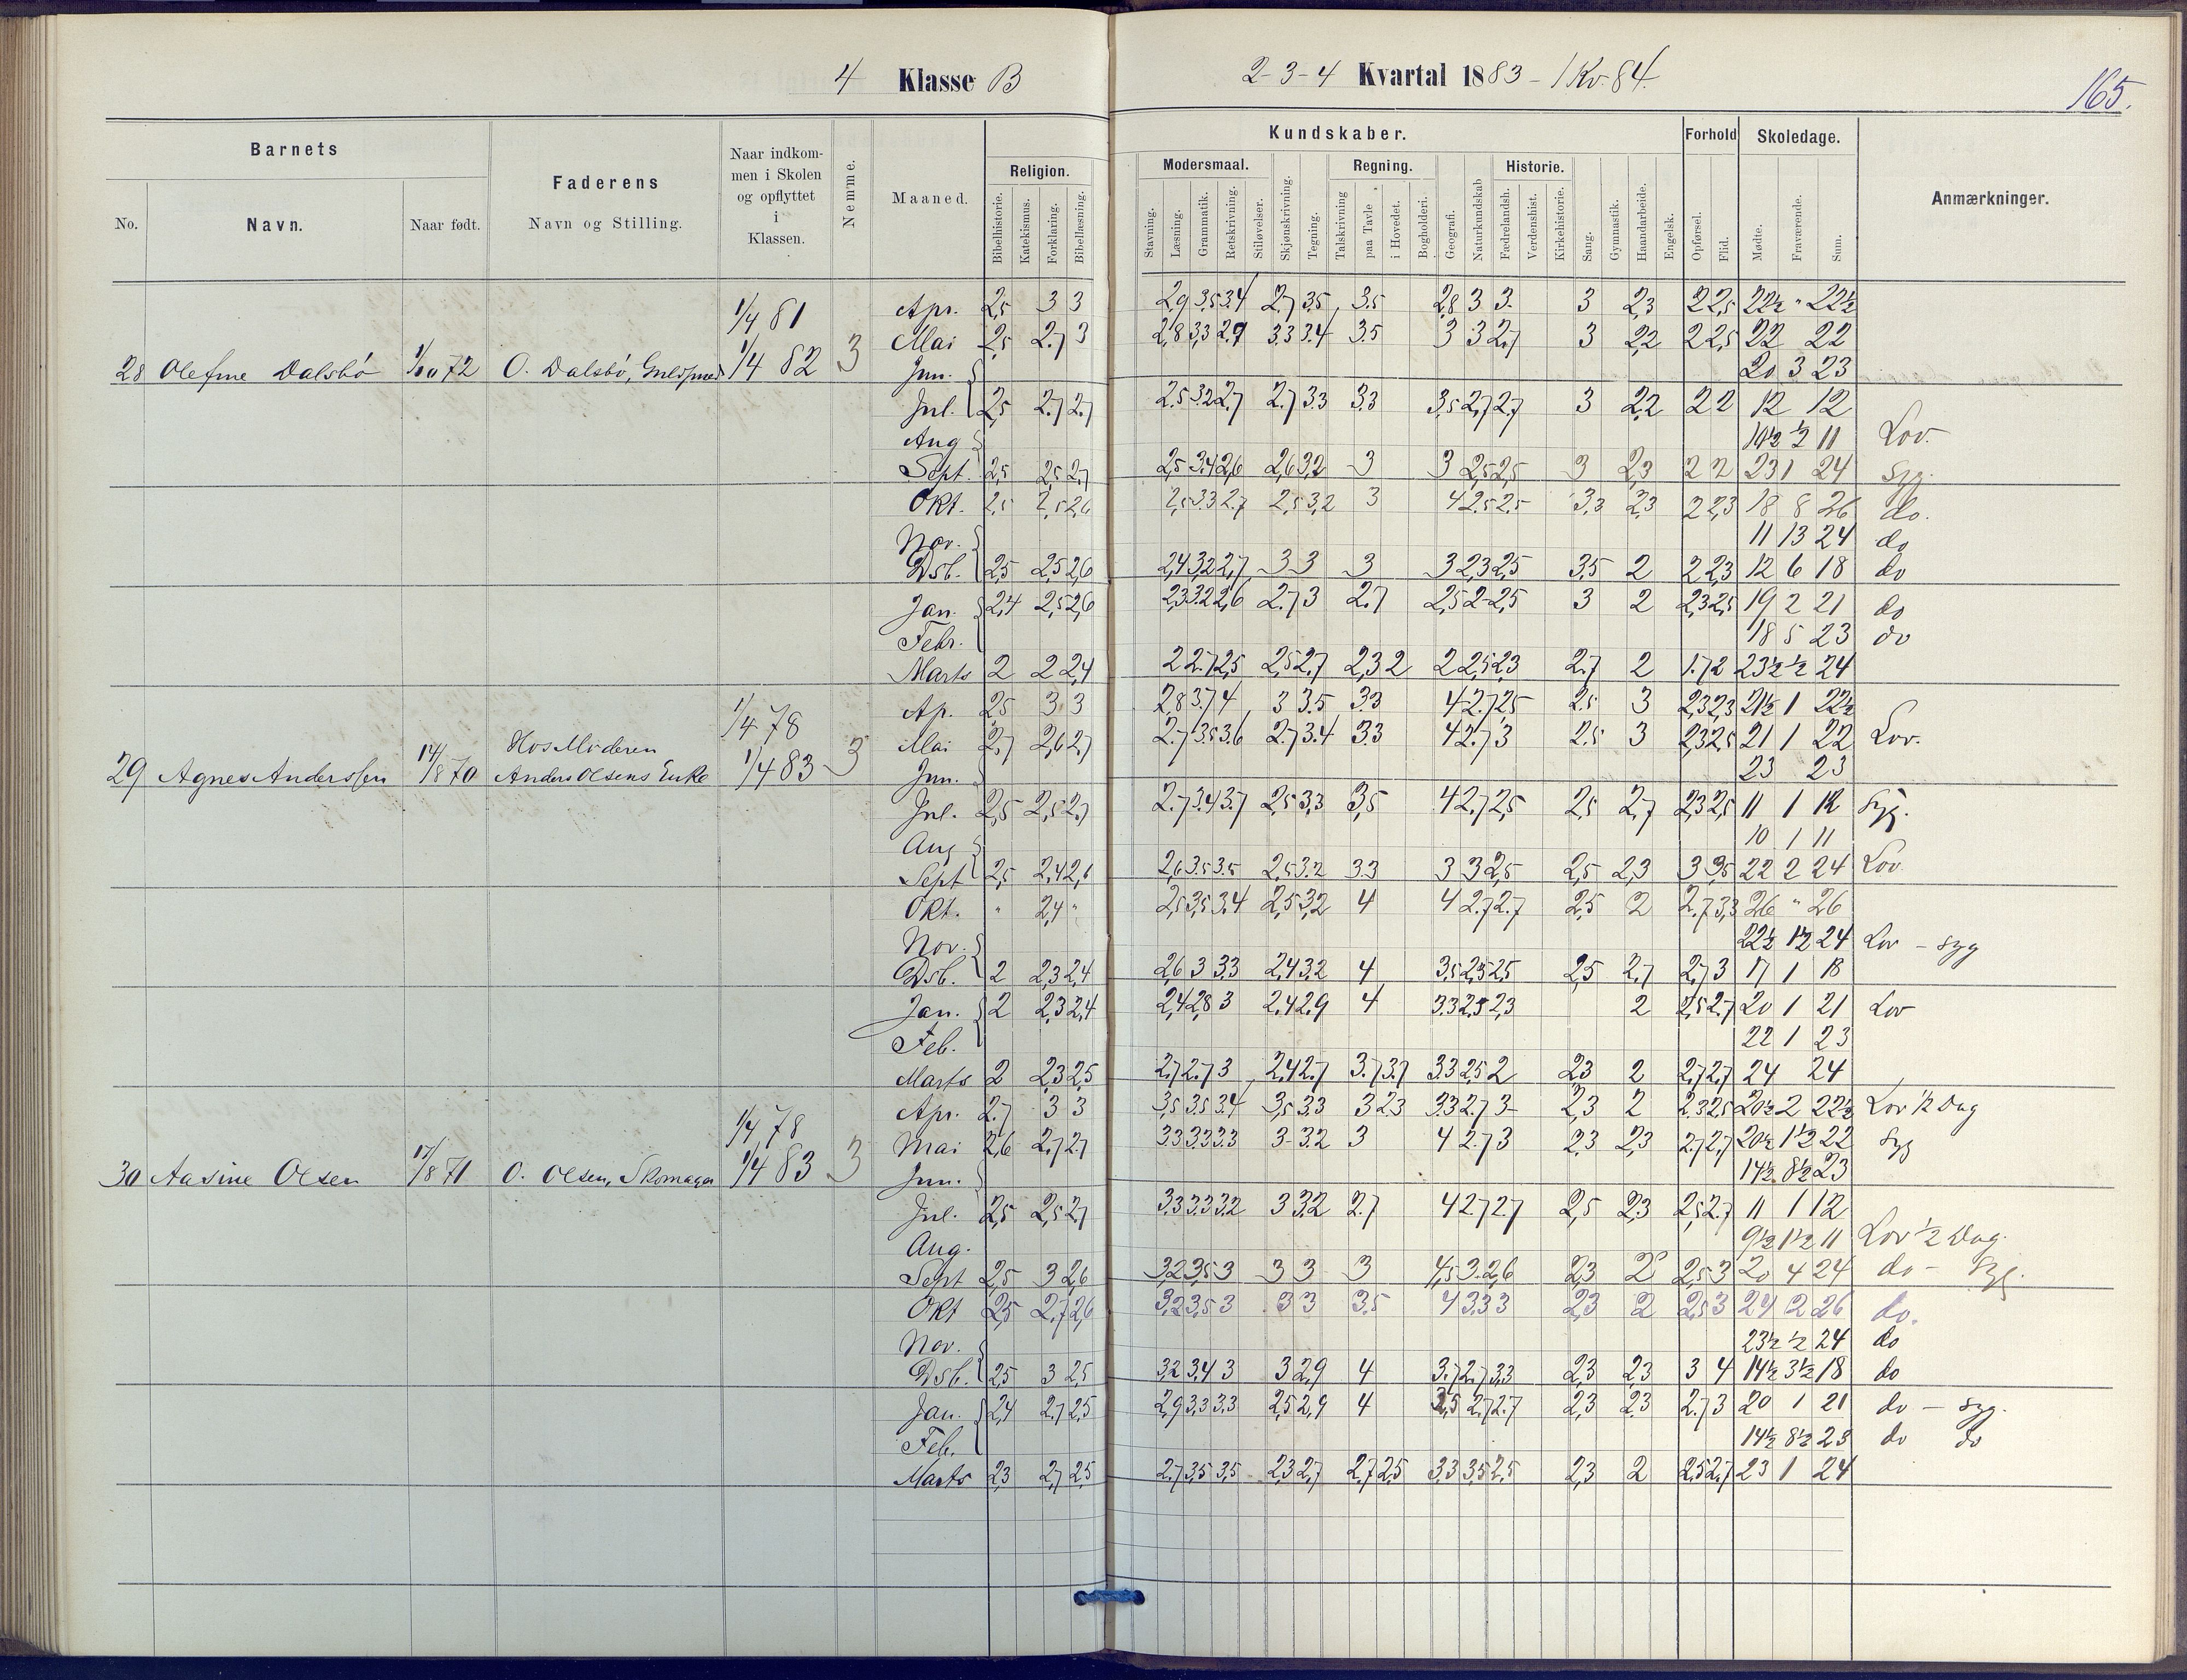 4 Klasse B
2-3-4 Kvartal 1883 - 1 Kv. 84.
165.
Barnets
No.
Navn.
Naar født.
Faderens
Navn og Stilling.
Naar indkom-
men i Skolen
og opflyttet
i
Klassen.
Nemme.
Maaned.
Religion.
Bibelhistorie.
Katekismus.
Forklaring.
Bibellæsning.
Kundskaber.
Modersmaal.
Stavning.
Læsning.
Grammatik.
Retskrivning.
Stiløvelser.
Skjønskrivning.
Tegning.
Regning.
Talskrivning
paa Tavle
i Hovedet.
Bogholderi.
Geografi.
Naturkundskab
Historie.
Fædrelandsh.
Verdenshist.
Kirkehistorie.
Sang.
Gymnastik.
Haandarbeide.
Engelsk.
Forhold
Opførsel.
Flid.
Skoledage.
Mødte.
Fraværende.
Sum.
Anmærkninger.
1/4 81
28 Olefine Dalsbö 72 O. Dalsbö, 1/4 82 3
Apr. 2,5 3 3 2,9 3,5 3,4 2,7 3,5 3,5 2,8 3 3 3 2,3 2 2,5 22½ " 22½
Mai 2,5 2,7 3 2,8 3,3 2,9 3,3 3,4 3,5 3 3 2,7 3 2,2 2 2,5 22 22
Jun. 20 3 23
Jul. 2,5 2,7 2,7 2,5 3,2 2,7 2,7 3,3 3,3 3,5 2,7 2,7 3 2,2 2 2 12 12
Aug 10½ ½ 11 Lov.
Sept. 2,5 2,5 2,7 2,5 3,4 2,6 2,6 3,2 3 3 2,5 2,5 3 2,3 2 2 23 1 24 Syg.
Okt. 2,5 2,5 2,6 2,5 3,3 2,7 2,5 3,2 3 4 2,5 2,5 3,3 2,3 2 2,3 18 8 26 do.
Nov. 11 13 24 do
Dsb. 2,5 2,5 2,6 2,4 3,2 2,7 3 3 3 3 2,3 2,5 3,5 2 2 2,3 12 6 18 do
Jan. 2,4 2,5 2,6 2,3 3,2 2,6 2,7 3 2,7 2,5 2 2,5 3 2 2,3 2,5 19 2 21 do
Febr. 18 5 23 do
Marts 2 2 2,4 2 2,7 2,5 2,5 2,7 2,3 2 2 2,5 2,3 2,7 2 1,7 2 23½ ½ 24
1/4 78
Hos Moderen
29 Agnes Anderssen 14/8 70 Anders Olsens Enke 1/4 83 3
Ap. 2,5 3 3 2,8 3,7 4 3 3,5 3,3 4 2,7 2,5 2,5 3 2,3 2,3 21½ 1 22½
Mai 2,7 2,6 2,7 2,7 3,5 3,6 2,7 3,4 3,3 4 2,7 3 2,5 3 2,3 2,5 21 1 22 Lov.
Jun. 23 23
Jul. 2,5 2,5 2,7 2,7 3,4 3,7 2,5 3,3 3,5 4 2,7 2,5 2,5 2,7 2,3 2,5 11 1 12 Syg.
Aug 10 1 11
Sept 2,5 2,4 2,6 2,6 3,5 3,5 2,5 3,2 3,3 3 3 2,5 2,5 2,3 3 3,5 22 2 24 Lov.
Okt. " 2,4 " 2,5 3,5 3,4 2,5 3,2 4 4 2,7 2,7 2,5 2 2,7 3,3 26 " 26
Nov. 22½ 1½ 24 Lov - syg
Dsb. 2 2,3 2,4 2,6 3 3,3 2,4 3,2 4 3,5 2,5 2,5 2,5 2,7 2,7 3 17 1 18
Jan. 2 2,3 2,4 2,4 2,8 3 2,4 2,9 4 3,3 2,5 2,3 2 2,5 2,7 20 1 21 Lov
Feb. 22 1 23
Marts 2 2,3 2,5 2,7 2,7 3 2,4 2,7 3,7 3,7 3,3 2,5 2 2,3 2 2,7 2,7 24 24
1/4 78
30 Aasine Olsen 17/8 71 O. Olsen, Skomager 1/4 83 3
Apr. 2,7 3 3 3,5 3,5 3,4 3,5 3,3 3 2,3 3,3 2,7 3 2,3 2 2,3 2,5 20½ 2 22½ Lov ½ Dag
Mai 2,6 2,7 2,7 3,3 3,3 3,3 3 3,2 3 4 2,7 3 2,3 2,3 2,7 2,7 20½ 1½ 22 Syg
Jun. 14½ 8½ 23
Jul. 2,5 2,5 2,7 3,3 3,3 3,2 3 3,2 2,7 4 2,7 2,7 2,5 2,3 2,5 2,7 11 1 12
Aug. 9½ 1½ 11 Lov ½ Dag.
Sept 2,5 3 2,6 3,2 3,5 3 3 3 3 4,5 3 2,6 2,3 2 2,5 3 20 4 24 do - Syg.
Okt 2,5 2,7 2,6 3,2 3,5 3 3 3 3,5 4 3,3 3 2,3 2 2,5 3 24 2 26 do.
Nov. 23½ ½ 24 do
Dsb. 2,5 3 2,5 3,2 3,4 3 3 2,9 4 3,7 2,7 3,3 2,3 2,3 3 4 14½ 3½ 18 do
Jan. 2,4 2,7 2,5 2,9 3,3 3,3 2,5 2,9 4 3,5 2,7 2,7 2,3 2,3 2,7 3 20 1 21 do - syg.
Feb. 14½ 8½ 23 do do
Marts 2,3 2,7 2,5 2,7 3,5 3,5 2,3 2,7 2,7 2,5 3,3 3,5 2,5 2,3 2 2,5 2,7 23 1 24